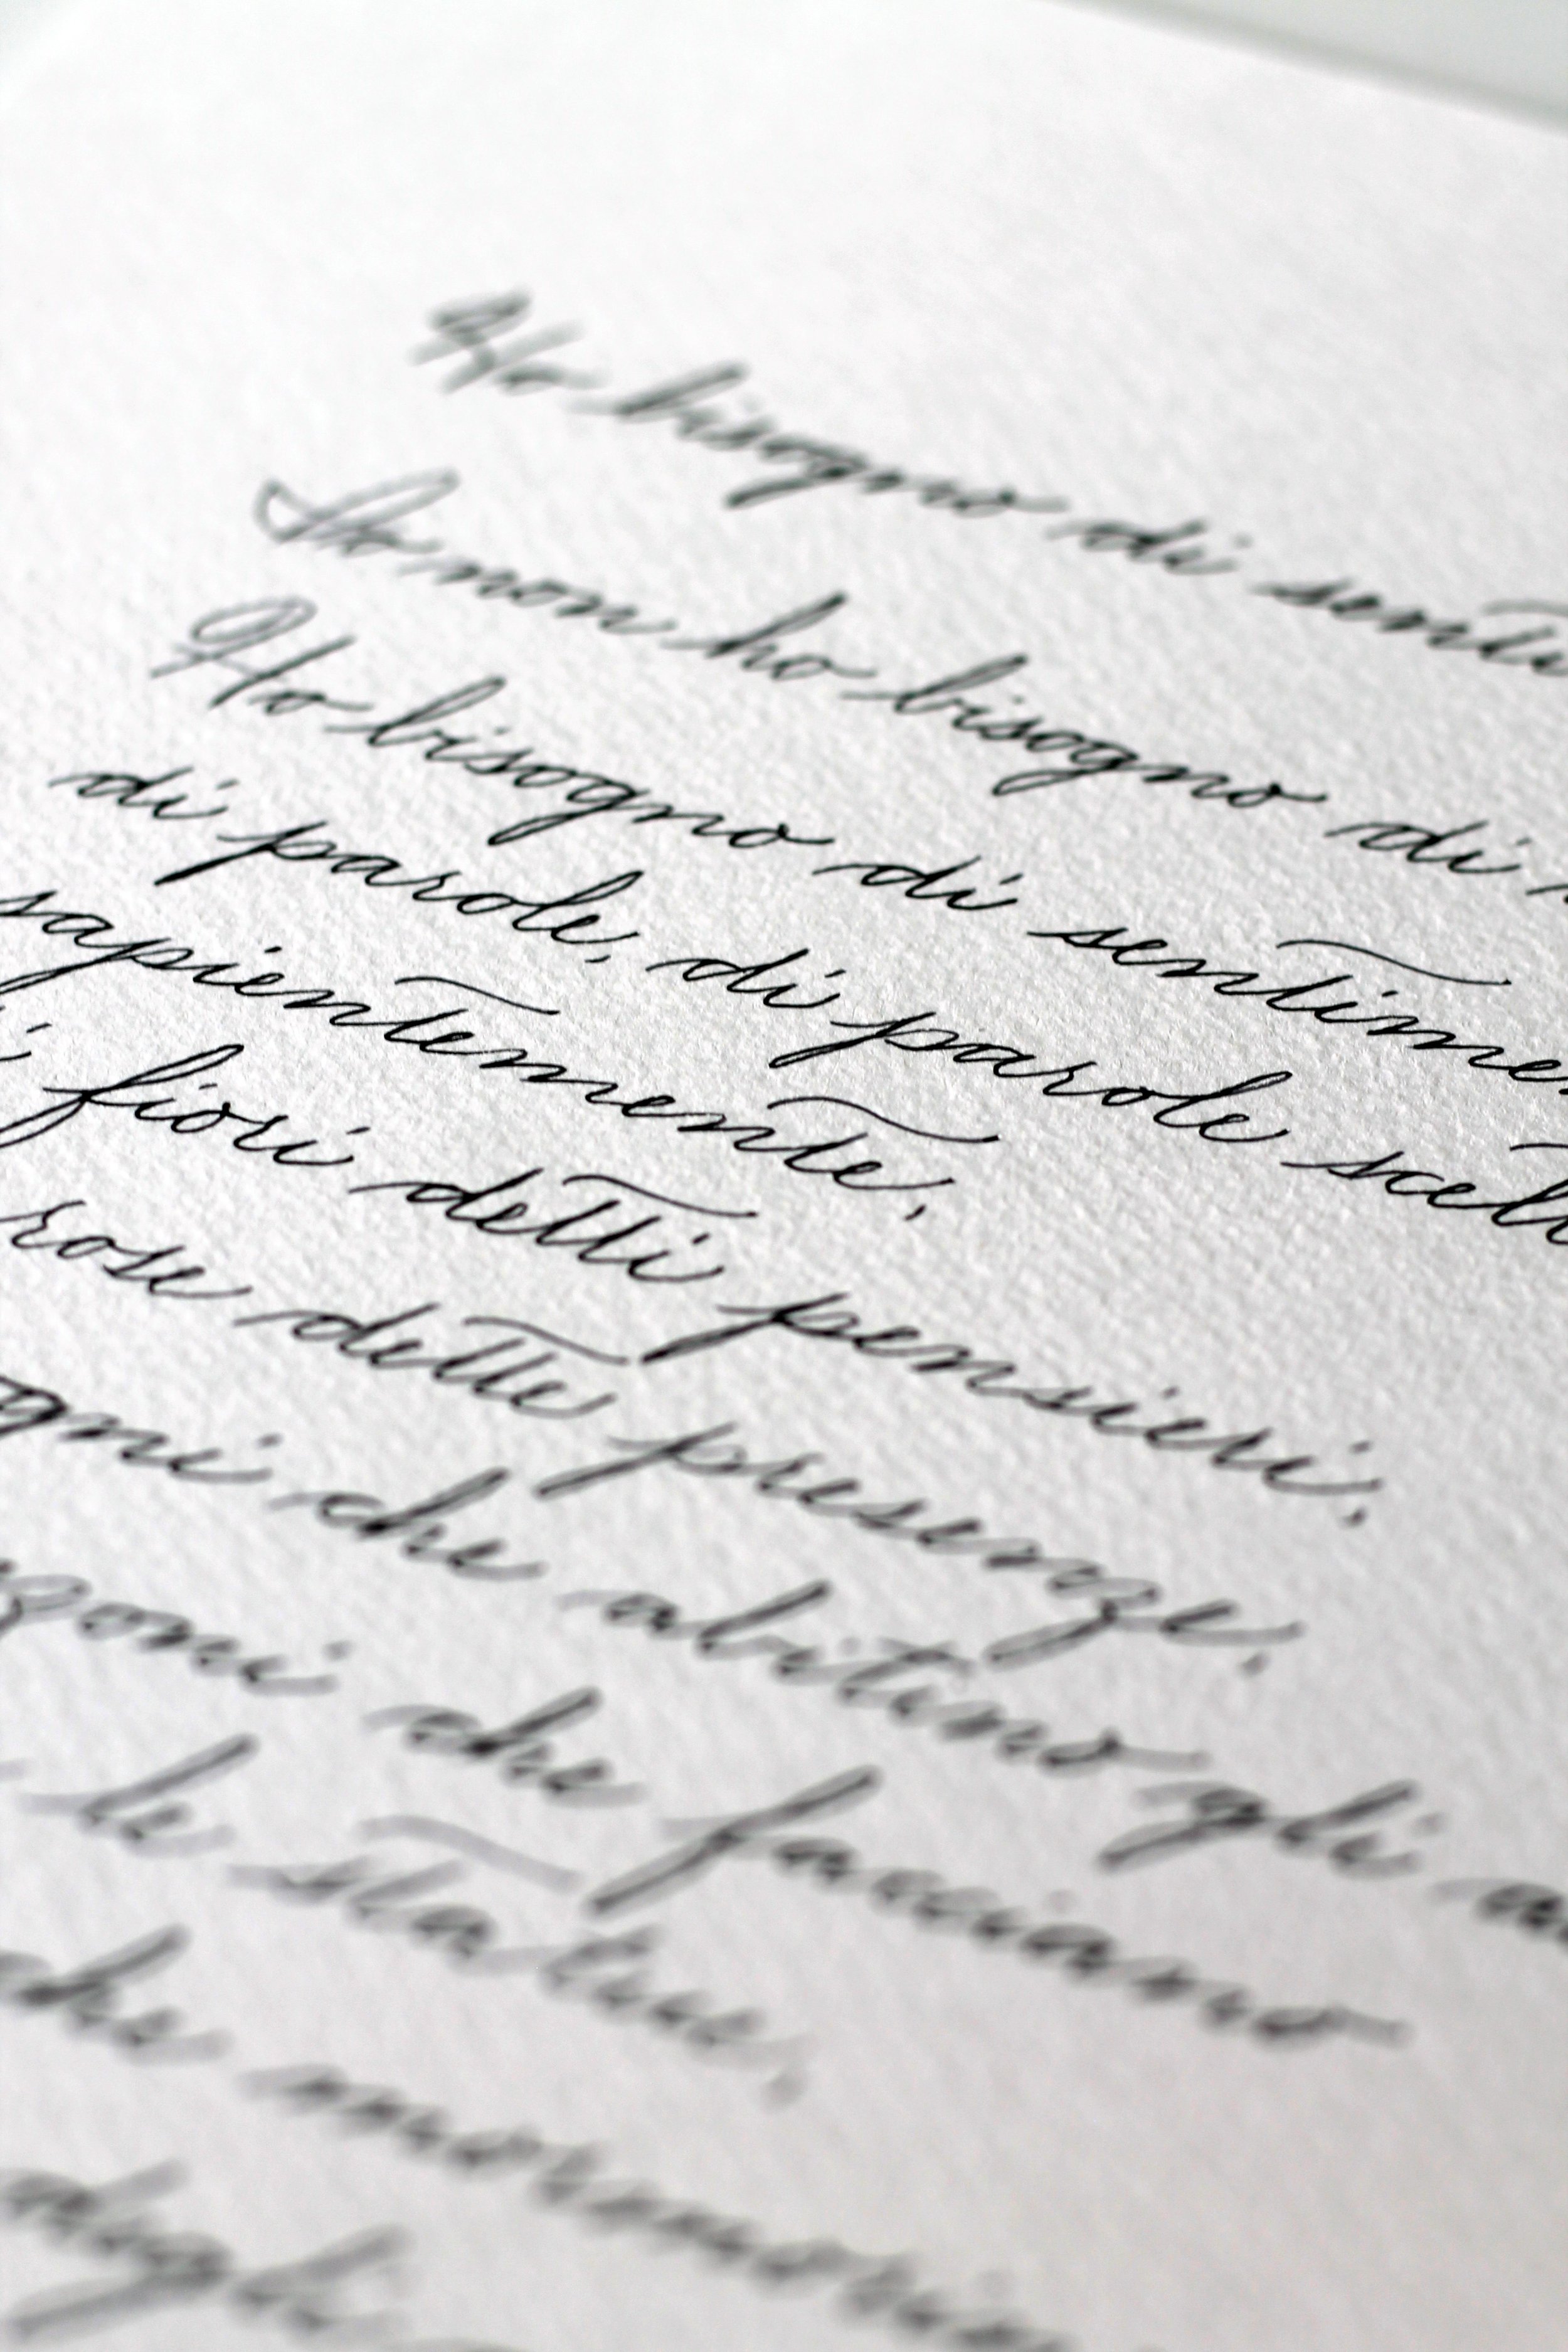 Ho bisogno di senti
Io non ho bisogno di
Ho bisogno di sentime
di parole, di parole scelt
sapientemente,
i fiori detti pensieri,
rose dette presenze,
ogni che abitino gli a
zoni che facciano
le statue,
che mormorin
degli